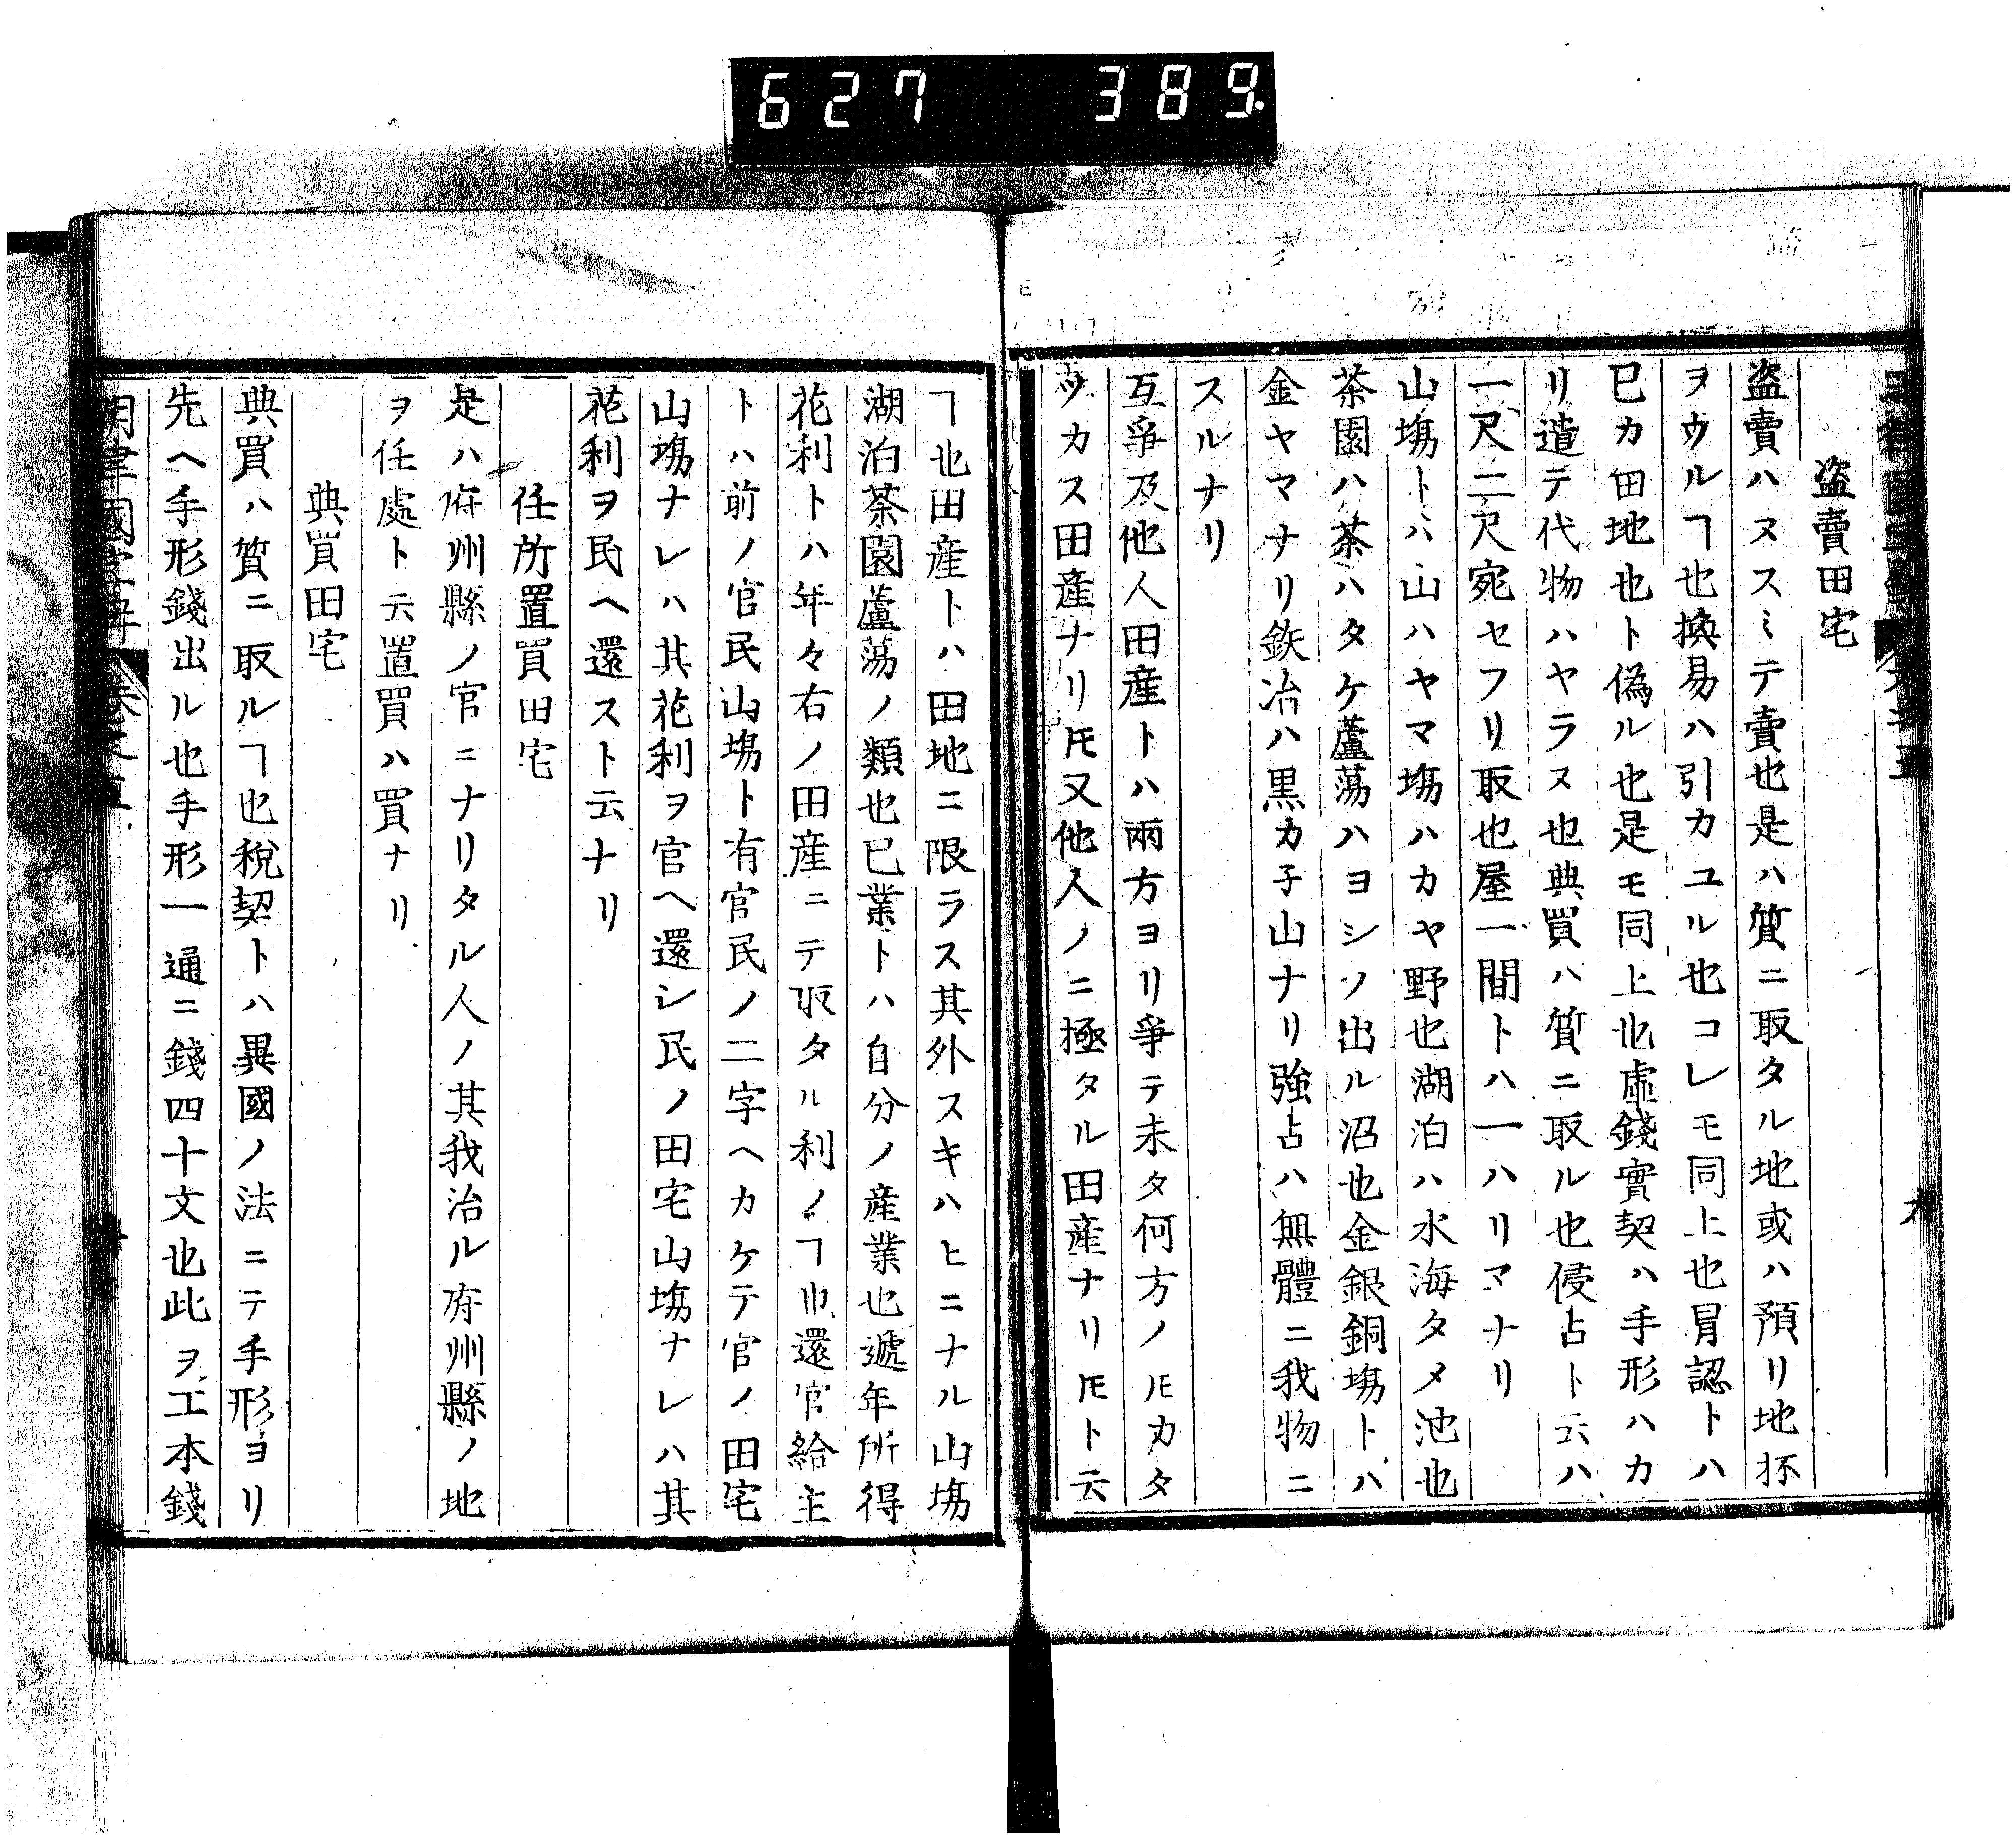 627 389
盗賣田宅
盗賣ハヌスミテ賣也是ハ質ニ取タル地或ハ預リ地抔
ヲウルヿ也換易ハ引カユル也コレモ同上也冐認トハ
已カ田地也ト偽ル也是モ同上也虚錢實契ハ手形ハカ
リ造テ代物ハヤラヌ也典買ハ質ニ取ル也侵占ト云ハ
一尺二尺宛セフリ取也屋一間トハ一ハリマナリ
山塲トハ山ハヤマ塲ハカヤ野也湖泊ハ水海タメ池也
茶園ハ茶ハタケ蘆蕩ハヨシノ出ル沼也金銀銅塲トハ
金ヤマナリ鉄冶ハ黒カ子山ナリ強占ハ無體ニ我物ニ
スルナリ
互爭及他人田産トハ兩方ヨリ爭テ未タ何方ノ𪜈カタ
ツカス田産ナリ𪜈又他人ノニ極タル田産ナリ𪜈ト云
ヿ也田産トハ田地ニ限ラス其外スキハヒニナル山塲
湖泊茶園蘆蕩ノ類也已業トハ自分ノ産業也遞年所得
花利トハ年々右ノ田産ニテ取タル利ノヿ也還官給主
トハ前ノ官民山塲ト有官民ノ二字ヘカケテ官ノ田宅
山塲ナレハ其花利ヲ官ヘ還シ民ノ田宅山塲ナレハ其
花利ヲ民ヘ還スト云ナリ
任所置買田宅
是ハ府州縣ノ官ニナリタル人ノ其我治ル府州縣ノ地
ヲ任處ト云置買ハ買ナリ
典買田宅
典買ハ質ニ取ルヿ也稅契トハ異國ノ法ニテ手形ヨリ
先ヘ手形錢出ル也手形一通ニ錢四十文也此ヲ工本錢